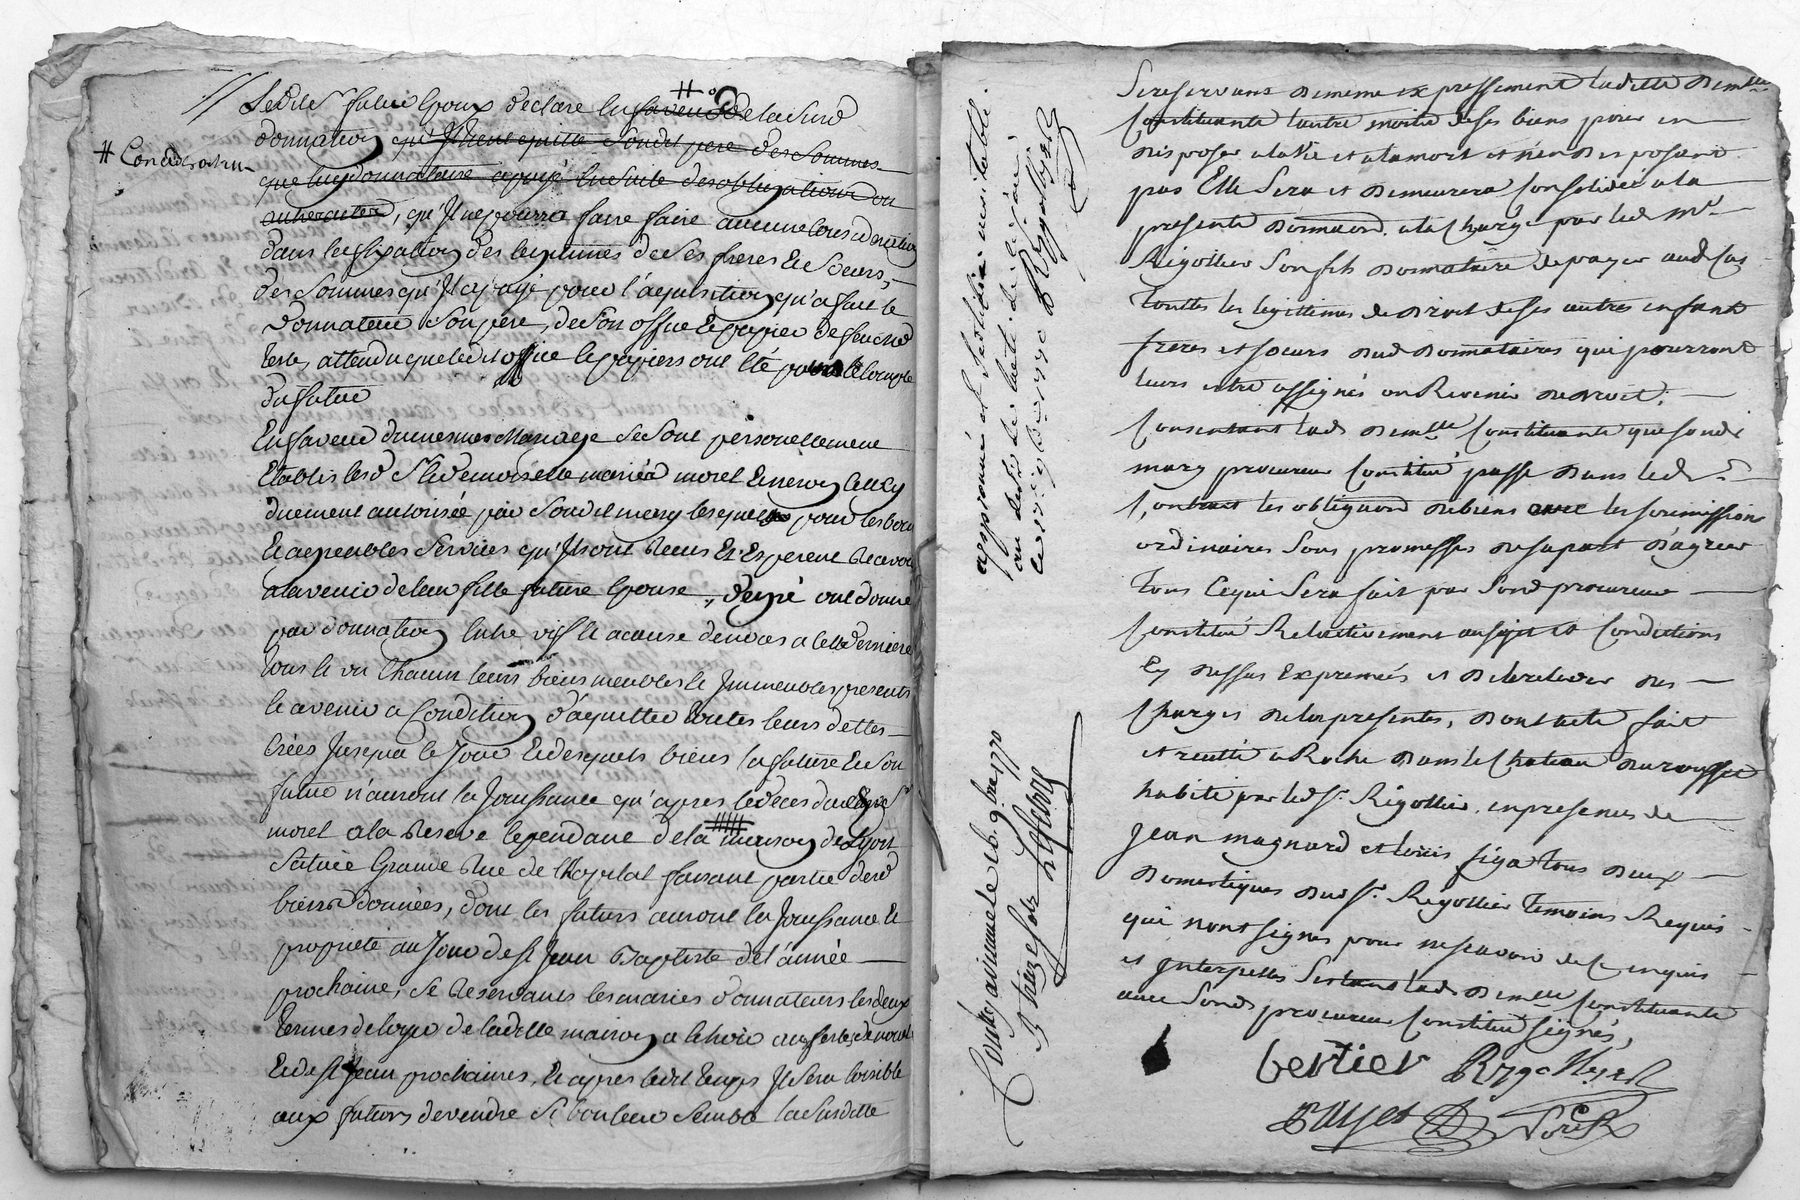 Ledit Sr futur Epoux declare en faveur de la susd
# Consideration
donnation qu'Il tient quitte Son dit pere des Sommes
que luy donnataire a payé en suite des obligations ou
autrement, qu'Il ne pourra faire faire aucune Consideration
dans les fixations des legitimes de Ses freres Et Soeurs,
des Sommes qu'Il a payé pour l'aquisition qu'a fait le
donnateur Son pere, de Son office
attendu que ledit office
du futur
En faveur du mesme Mariage Se Sont personellement
Etablis lesd Sr Et demoiselle mariés morel
duement autorisée par Son dit mary lesquels pour les bons
Et agreables Services qu'Ils ont Recus Et Esperent Recevoir
a l'avenir de leur fille future Epouse, de gré ont donné
par donnation Entre vifs Et a cause de noces a cette derniere
tous Et un Chacun leurs biens meubles Et Immeubles presents
Et avenir a Condition d'aquitter toutes leurs dettes
Créés Jusqu'a Ce Jour Et desquels biens la future Et Son
futur n'auront la Jouissance qu'apres le deces dudit Sr
morel a la Reserve Cependant de la maison de Lyon
Scituée Grande Rue de l'hopital faisant partie desd
biens donnés, dont les futurs auront la Jouissance Et
proprieté au Jour de St Jean Baptiste de l'année
prochaine, Se Reservants les mariés donnateurs les deux
termes de loyer de ladite maison a Echoir aux festes de noel
Et de St Jean prochaines, Et apres ledit temps Il Sera loisible
aux futurs de vendre Si bon leur Semble la Susditte
approuvé et
au
ce 1770 Rigollier
Conttrôllé a 9bre 1770
R treize sols Lefebvre
Se reservant de meme expressement laditte Demlle
Constituante l'autre moitié de ses biens pour en
disposer a la vie et a la mort et n'en disposant
pas Elle Sera et demeurera Consolidée a la
presente Donnaon. a la Charge par led Mr
Rigollier Son fils Donnataire de payer aud Cas
touttes les legittimes de Droit de ses autres enfants
freres et soeurs dud Donnataires qui pourront
leurs etre assignés ou Revenir de droit.
Consentant lad Demlle Constituante que sond
mary procureur Constitué passe dans led
Contrat les obligaons de biens avec les soumissions
ordinaires Sous promesses de sa part d'agreer
tous Ce qui Sera fait par Sond procureur
Constitué Relativement au sujet et Conditions
Cy dessus Exprimés et de le relever des
Charges de la presente, Dont acte fait
et recitté a Roche Dans le Chateau
habité par led Sr. Rigollier. en presence de
Jean magnard et Louis figa tous deux
Domestiques dud Sr. Rigollier temoins Requis
qui n'ont signés pour ne scavoir de Ce enquis
et Interpellés lad Demlle Constituante
avec Sond procureur Constitué signés,
Bertier Rigollier
Payet